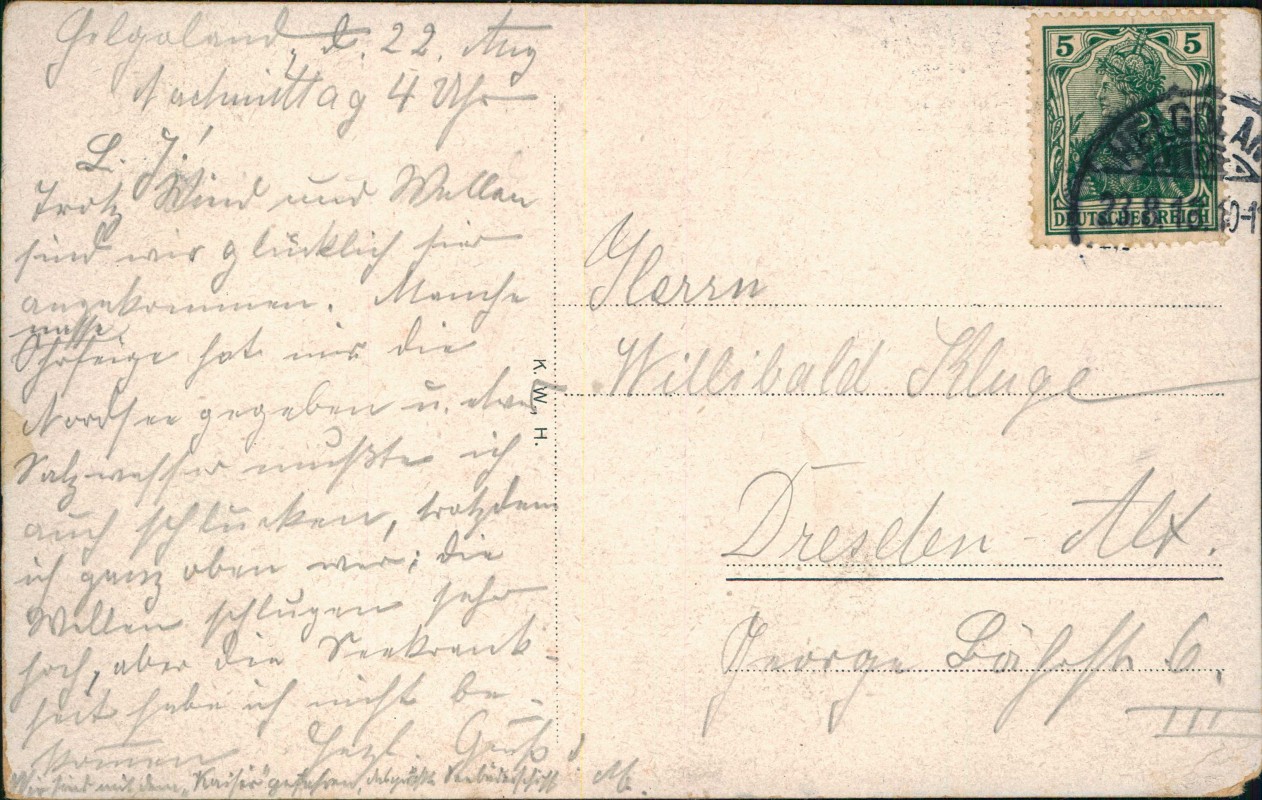 Helgoland, d. 22. Aug
Nachmittag 4 Uhr
L. J.!
Trotz Wind und Wellen
sind wir glücklich hier
angekommen. Manche
nasse
Ohrfeige hat mir die
Nordsee gegeben u. etwas
Salzwasser mußte ich
auch schlucken, trotzdem
ich ganz oben war; die
Wellen schlugen sehr
hoch, aber die Seekrank-
heit habe ich nicht be-
kommen Herzl. Gruß
Wir sind mit dem „Kaiser" gefahren, das größte Seebäderschiff
K. W., H.
5 5
DEUTSCHES REICH
HELGOLAN
Herrn
Willibald Kluge
Dresden - Alt.
George Bährstr 6,
III